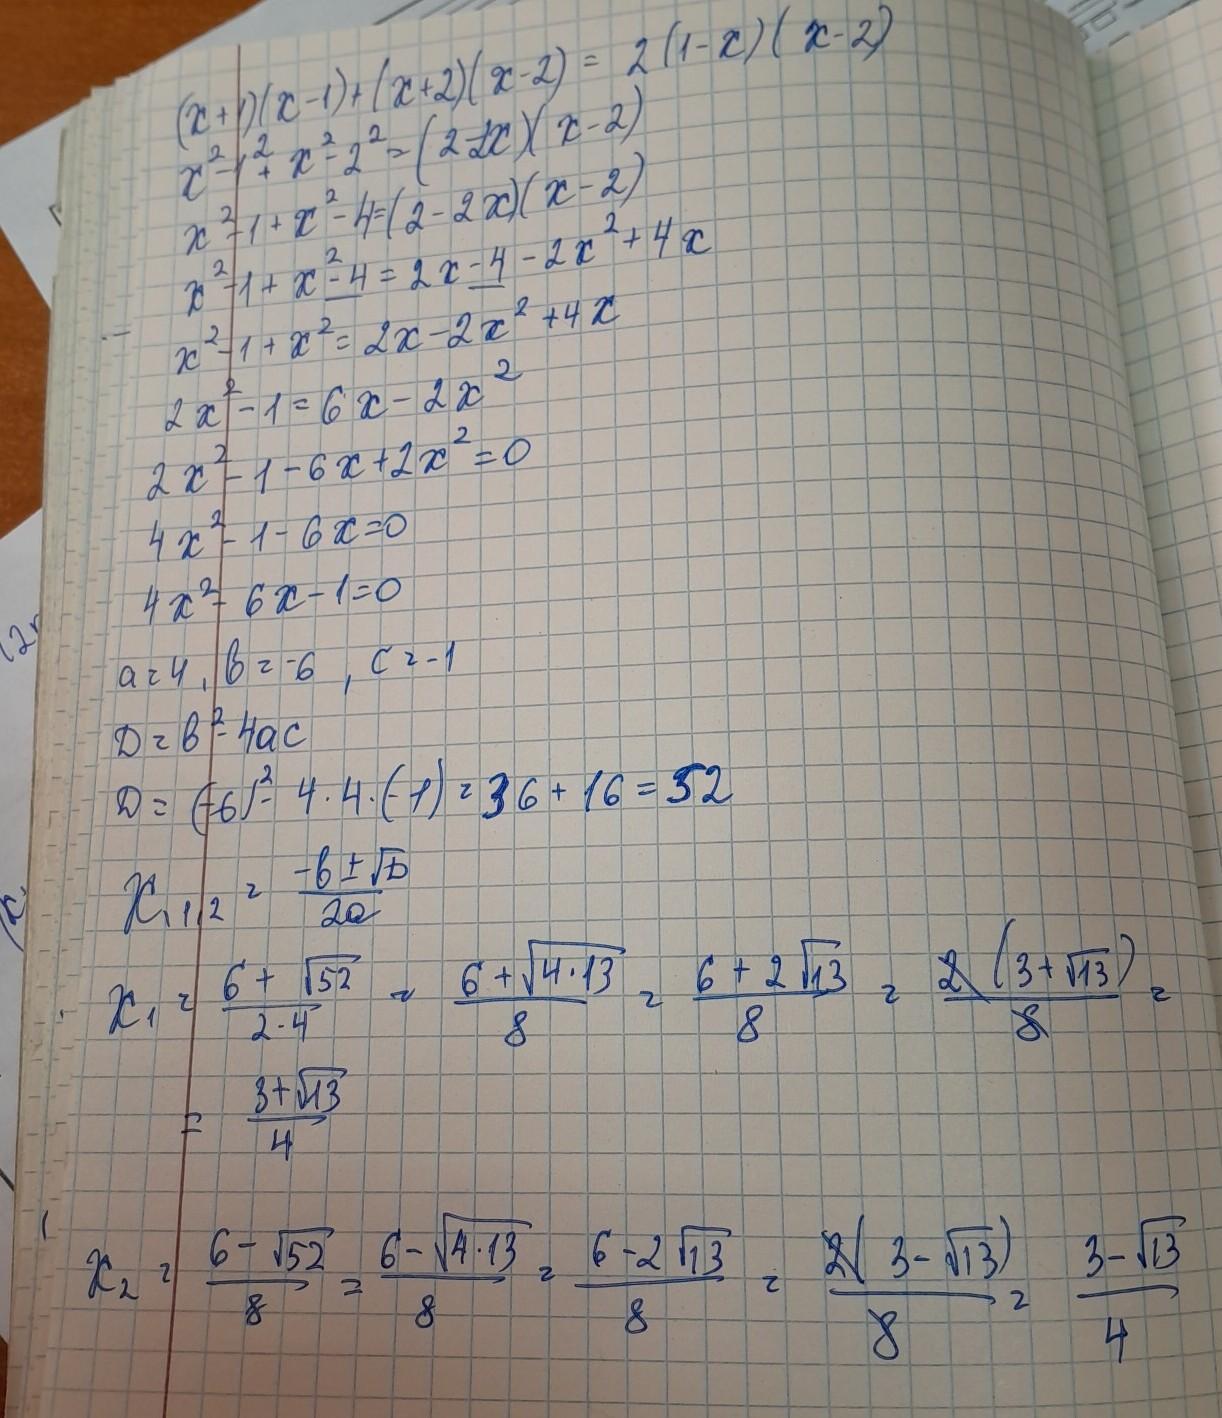 (x+1)(x-1)+(x+2)(x-2) = 2(1-x)(x-2)
x²-1²+x²-2²=(2-2x)(x-2)
x²-1+x²-4=(2-2x)(x-2)
x²-1+x²-4=2x-4-2x²+4x
x²-1+x²=2x-2x²+4x
2x²-1=6x-2x²
2x²-1-6x+2x²=0
4x²-1-6x=0
4x²-6x-1=0
a=4, b=-6, c=-1
D=b²-4ac
D=(-6)²-4·4·(-1)=36+16=52
x₁,₂ = (-b±√D)/2a
x₁ = (6+√52)/(2·4) = (6+√(4·13))/8 = (6+2√13)/8 = 2(3+√13)/8 =
= (3+√13)/4
x₂ = (6-√52)/8 = (6-√(4·13))/8 = (6-2√13)/8 = 2(3-√13)/8 = (3-√13)/4